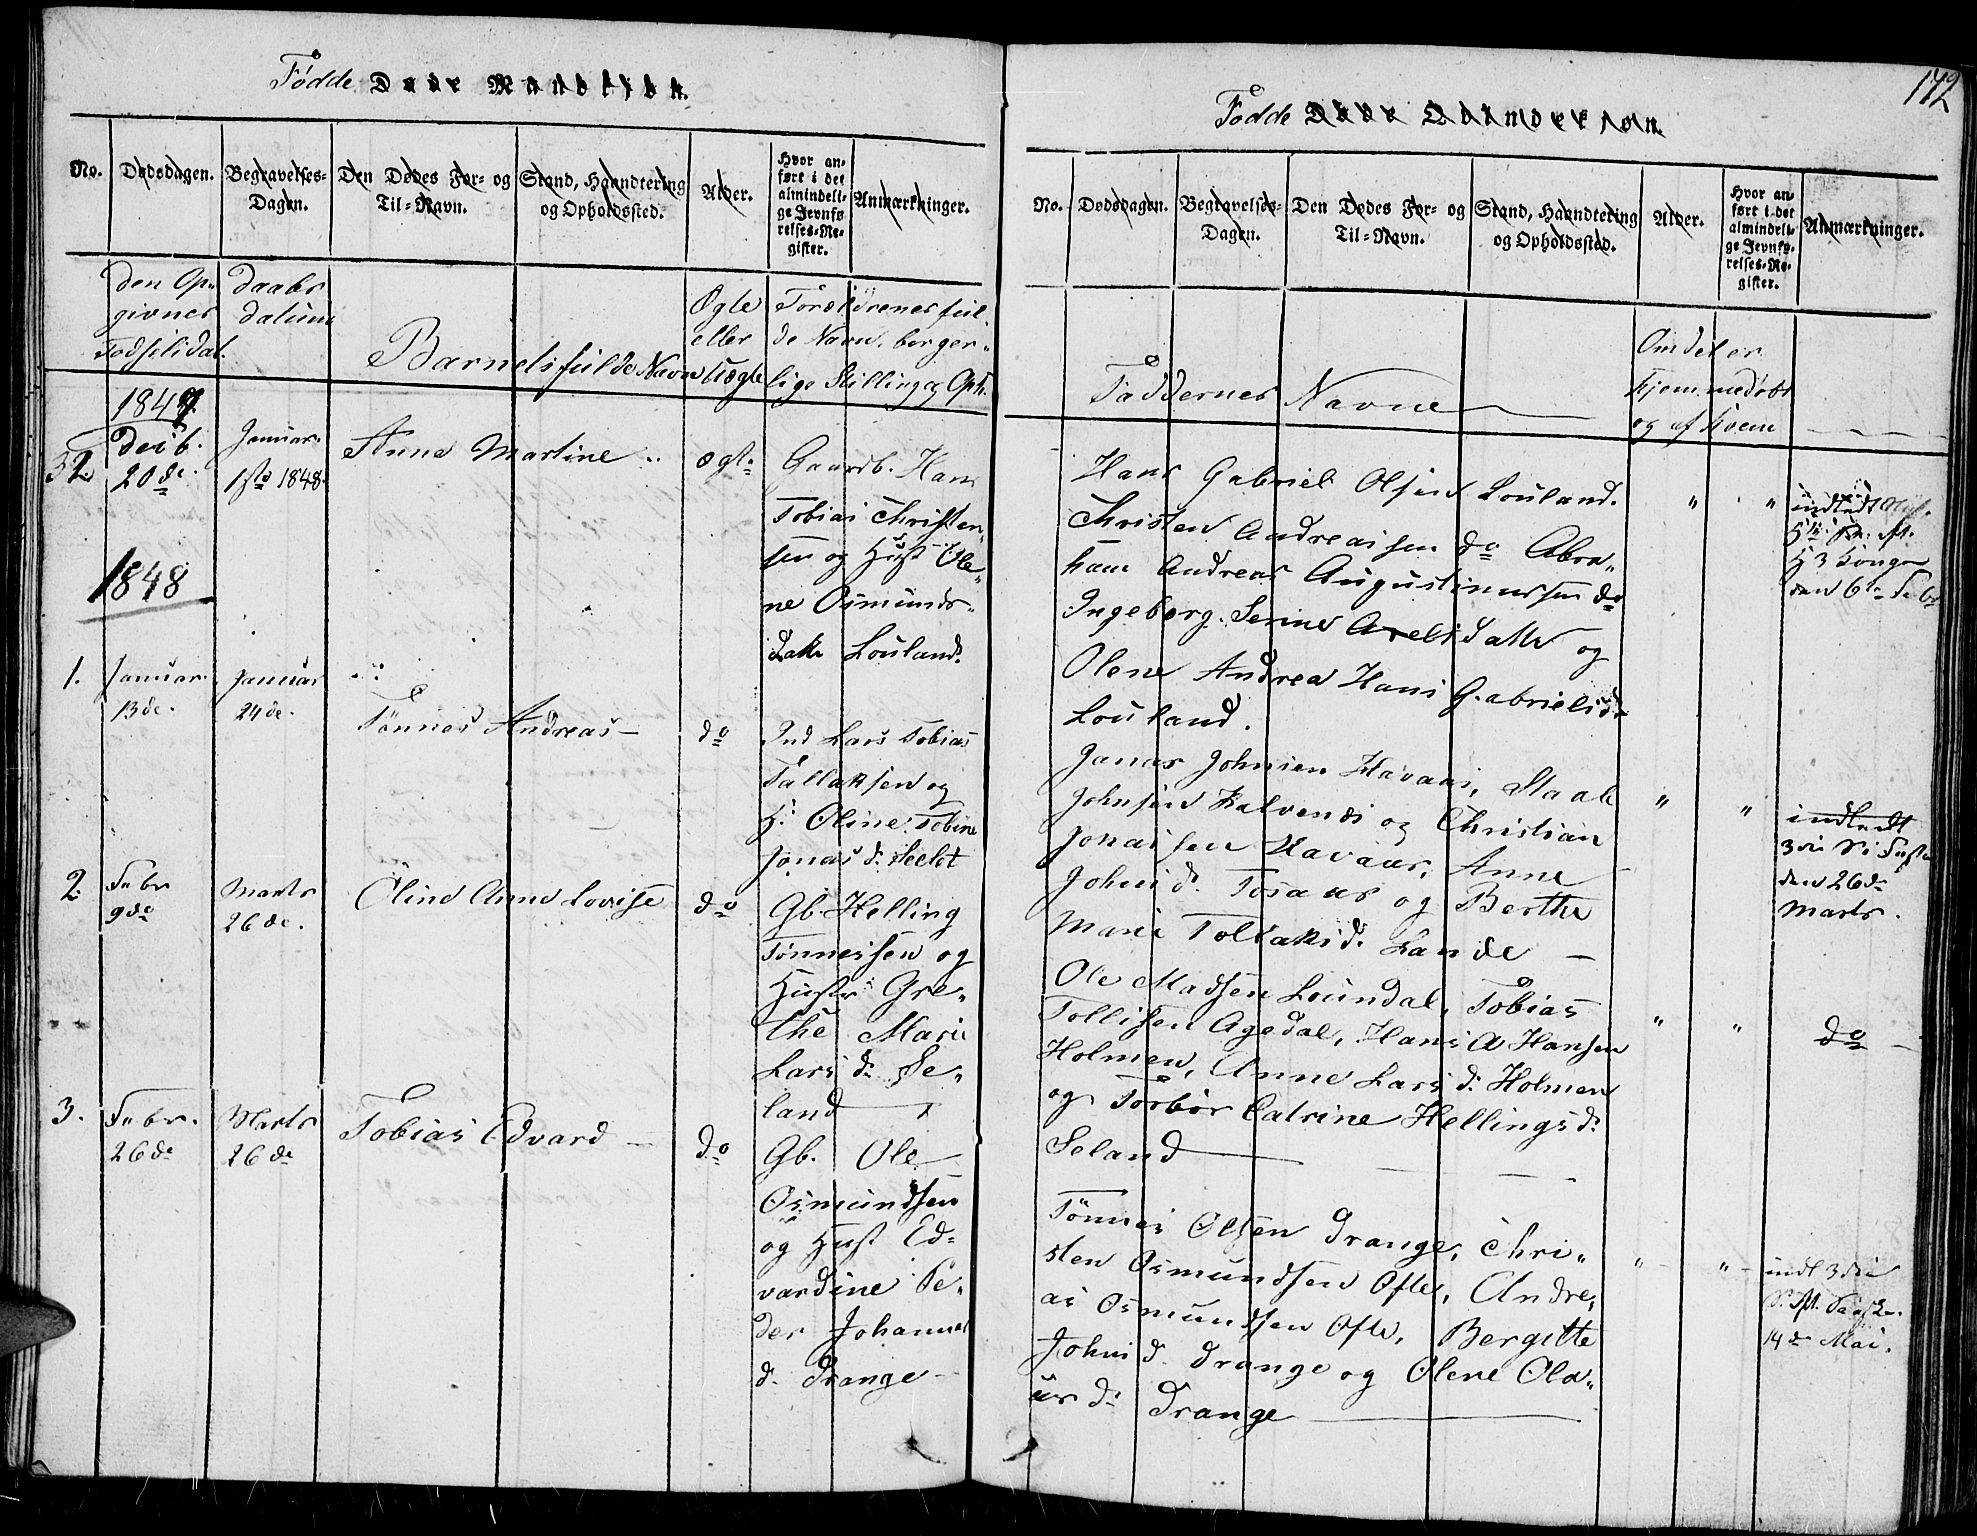 Fødde Døde Mandkiøn.
No.
Dødsdagen.
Begravelses-
Dagen.
Den Dødes For- og
Til-Navn.
Stand, Haandtering
og Opholdssted.
Alder.
Hvor an-
ført i det
almindeli-
ge Jevnfø-
relses-Re-
gister.
Anmærkninger.
den Op-
givnes
Fødselsdat.
Daabs
datum
Barnets fulde Navn
Ægte
eller
Uægte
Forældrenes ful-
de Navn, borger-
lige Stilling og Oph.
1847
52
Decb.
20de
Januar
1ste 1848.
Anne Martine
ægt.
Gaardb. Hans
Tobias Christen-
sen og Hust Ole-
ne Osmunds-
datr Louland.
1848
1.
Januar
13de.
Januar
24de.
Tønnes Andreas —
do
Ind Lars Tobias
Tallaksen og
H. Oline Tobine
Jonas d.
2
Febr
9de
Marts
26de.
Oline Anne Lovise
do
Gb Helling
Tønnessen og
Hustr Gre-
the Marie
Lars d. Se-
land
3.
Febr.
26de
Marts
26de
Tobias Edvard —
do
Gb. Ole
Osmundsen
og Hust Ed-
vardine Pe-
der Johannes
d. Drange
172
Fødde Døde Qvindekiøn.
No.
Dødsdagen.
Begravelses-
Dagen.
Den Dødes For- og
Til-Navn.
Stand, Haandtering
og Opholdssted.
Alder.
Hvor an-
ført i det
almindeli-
ge Jevnfø-
relses-Re-
gister.
Anmærkninger.
Faddernes Navne
Om det er
hjemmedøbt
og af hvem
Hans Gabriel Olsen Louland.
Christen Andreassen do Abra-
ham Andreas Augustinussen do
Ingeborg Serine Axels Datter og
Olene Andrea Hans Gabrielsd.
Louland.
" "
indledt
H 3 Konger
den 6te Febr
Jonas Johnsen Havaas, Staale
Johnsen Kalvenes og Christian
Jonassen Havaas, Anne
Johns d. Tosaas og Berthe
Marie Tollaks d. Lande —
" "
indledt
3die S i Faste
den 26de
Marts.
Ole Madsen Loundal, Tobias
Tollisen Agedal, Hans A Hansen
Holmen, Anne Lars d. Holmen
og Torbor Catrine Hellings d.
Seland
" "
do —
Tønnes Olsen Drange, Chri-
sten Osmundsen Ofte, Andre-
as Osmundsen Ofte, Bergitte
Johns d. Drange og Olene Ola-
us d. Drange
" "
indl 3die
S. eft. Paaske
14de Mai.